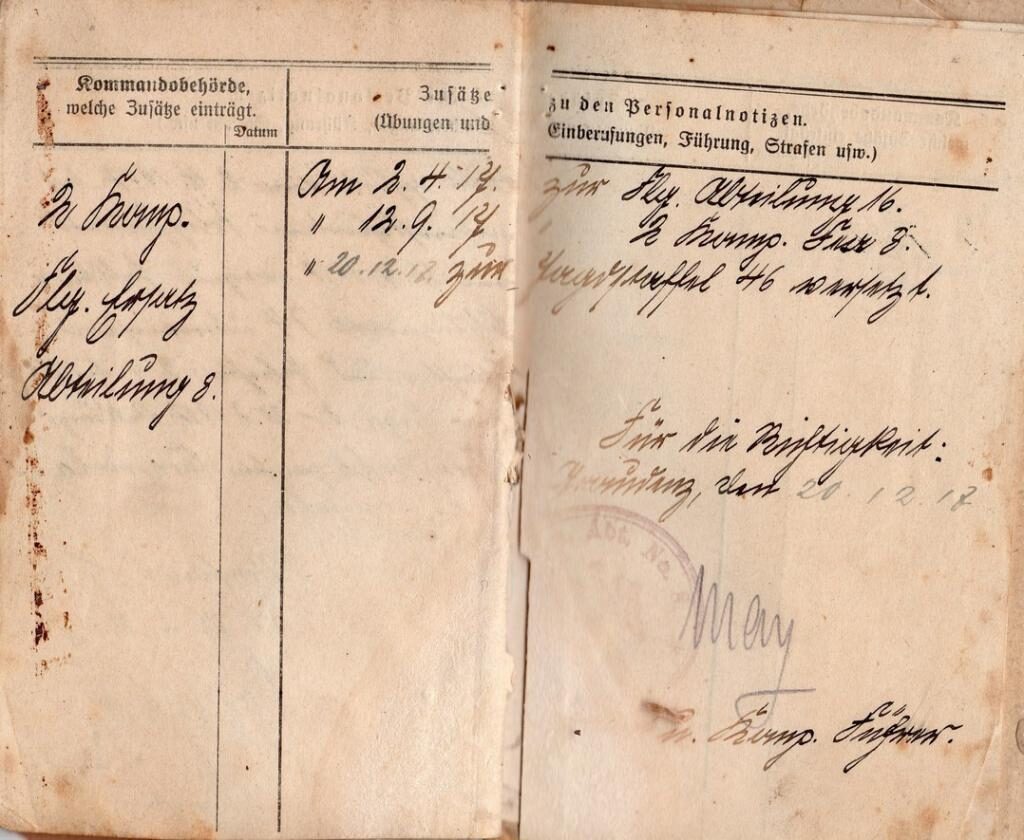 Kommandobehörde,
welche Zusätze einträgt.
Datum
Zusätze zu den Personalnotizen.
(Übungen und Einberufungen, Führung, Strafen usw.)
2 Komp.
Flg. Ersatz
Abteilung 8.
Am 2. 4. 17. zur Flg. Abteilung 16.
" 12. 9. 17 " 2 Komp. Fea 8.
" 20.12.17 zur Jagdstaffel 46 versetzt.
Für die Richtigkeit:
Graudenz, den 20. 12. 17
Abt. No.
May
u. Komp. Führer.